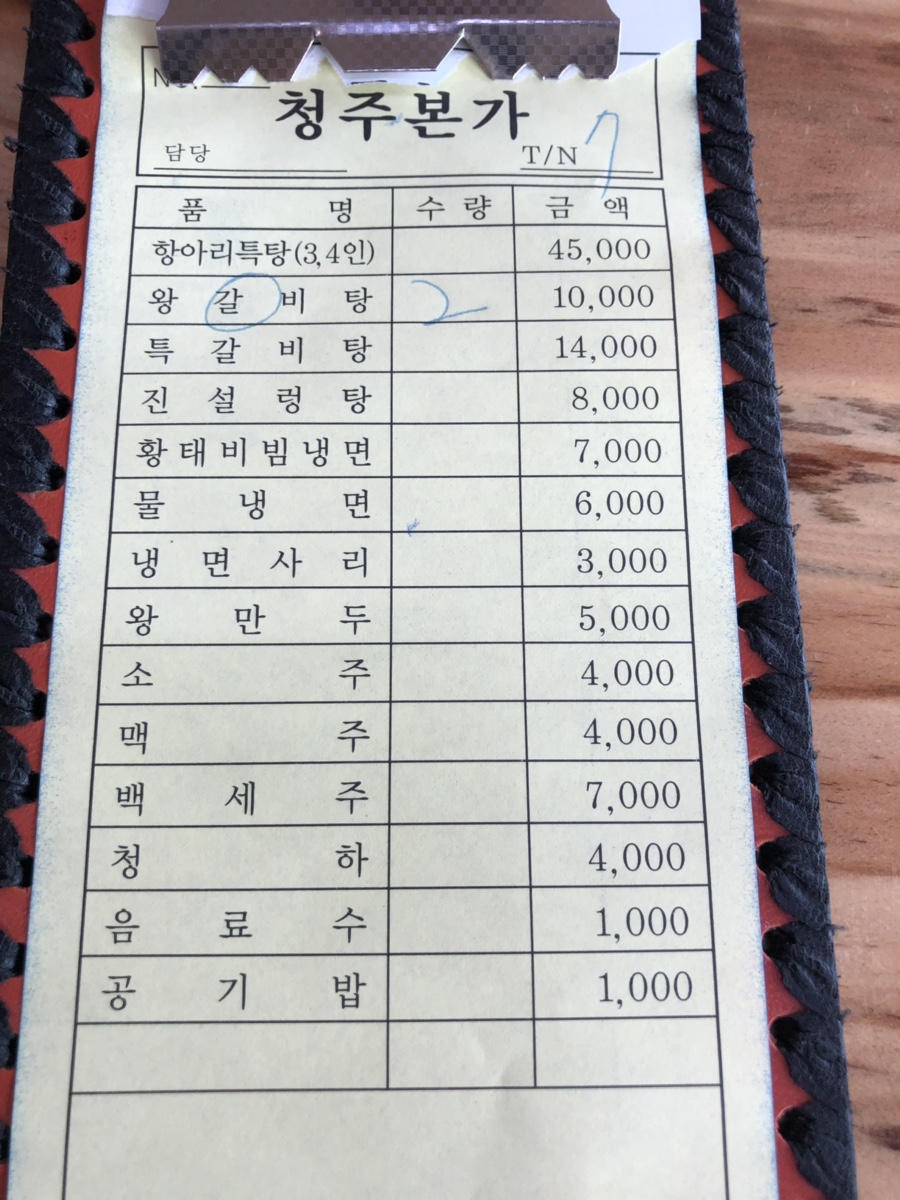 No.
청주본가
담당 T/N 7
품 명 수 량 금 액
항아리특탕(3,4인) 45,000
왕 갈 비 탕 2 10,000
특 갈 비 탕 14,000
진 설 렁 탕 8,000
황 태 비 빔 냉 면 7,000
물 냉 면 6,000
냉 면 사 리 3,000
왕 만 두 5,000
소 주 4,000
맥 주 4,000
백 세 주 7,000
청 하 4,000
음 료 수 1,000
공 기 밥 1,000